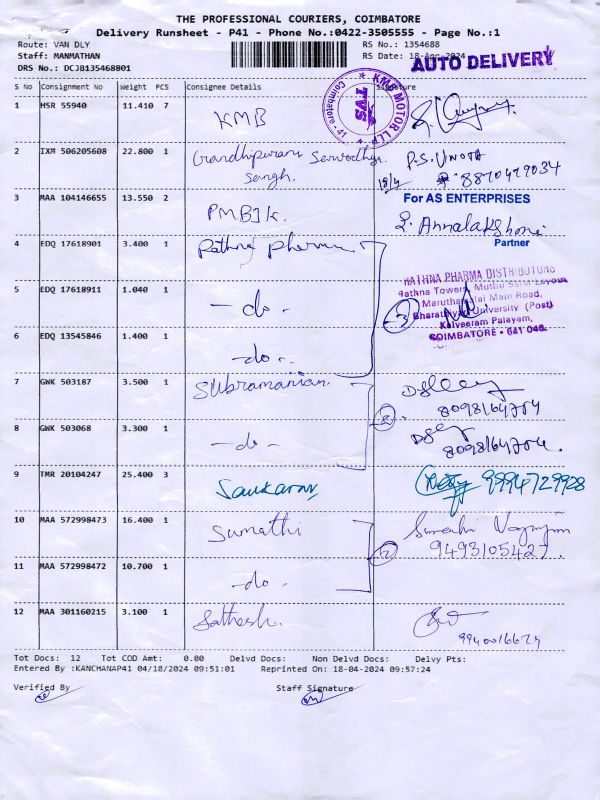 THE PROFESSIONAL COURIERS, COIMBATORE
Delivery Runsheet - P41 - Phone No.:0422-3505555 - Page No.:1
Route: VAN DLY RS No.: 1354688
Staff: MANMATHAN RS Date: 18-Apr-2024
DRS No.: DCJB135468801
AUTO DELIVERY
S No Consignment No Weight PCS Consignee Details Signature
1 HSR 55940 11.410 7 KMB
KMB MOTOR LLP
TVS
Coimbatore - 41
2 IXM 506205608 22.800 1 Gandhipuram Sarvodhya
Sangh.
P.S. Vinoth
18/4 8870479034
3 MAA 104146655 13.550 2 PMBJK.
For AS ENTERPRISES
Partner
4 EDQ 17618901 3.400 1 Rathna Pharma
RATHNA PHARMA DISTRIBUTORS
Rathna Towers, Muthu Layout
Maruthamalai Main Road,
Bharathiyar University (Post)
Kalveeram Palayam,
COIMBATORE - 641 046.
5 EDQ 17618911 1.040 1 - do -
3
6 EDQ 13545846 1.400 1 - do -
7 GWK 503187 3.500 1 Subramanian
2
8098164754
8 GWK 503068 3.300 1 - do -
8098164754.
9 TMR 20104247 25.400 3 Sankaran
9994729928
10 MAA 572998473 16.400 1 Sumathi
2
9493105427.
11 MAA 572998472 10.700 1 - do -
12 MAA 301160215 3.100 1 Sathesh.
Tot Docs: 12 Tot COD Amt: 0.00 Delvd Docs: Non Delvd Docs: Delvy Pts:
Entered By :KANCHANAP41 04/18/2024 09:51:01 Reprinted On: 18-04-2024 09:57:24
Verified By Staff Signature